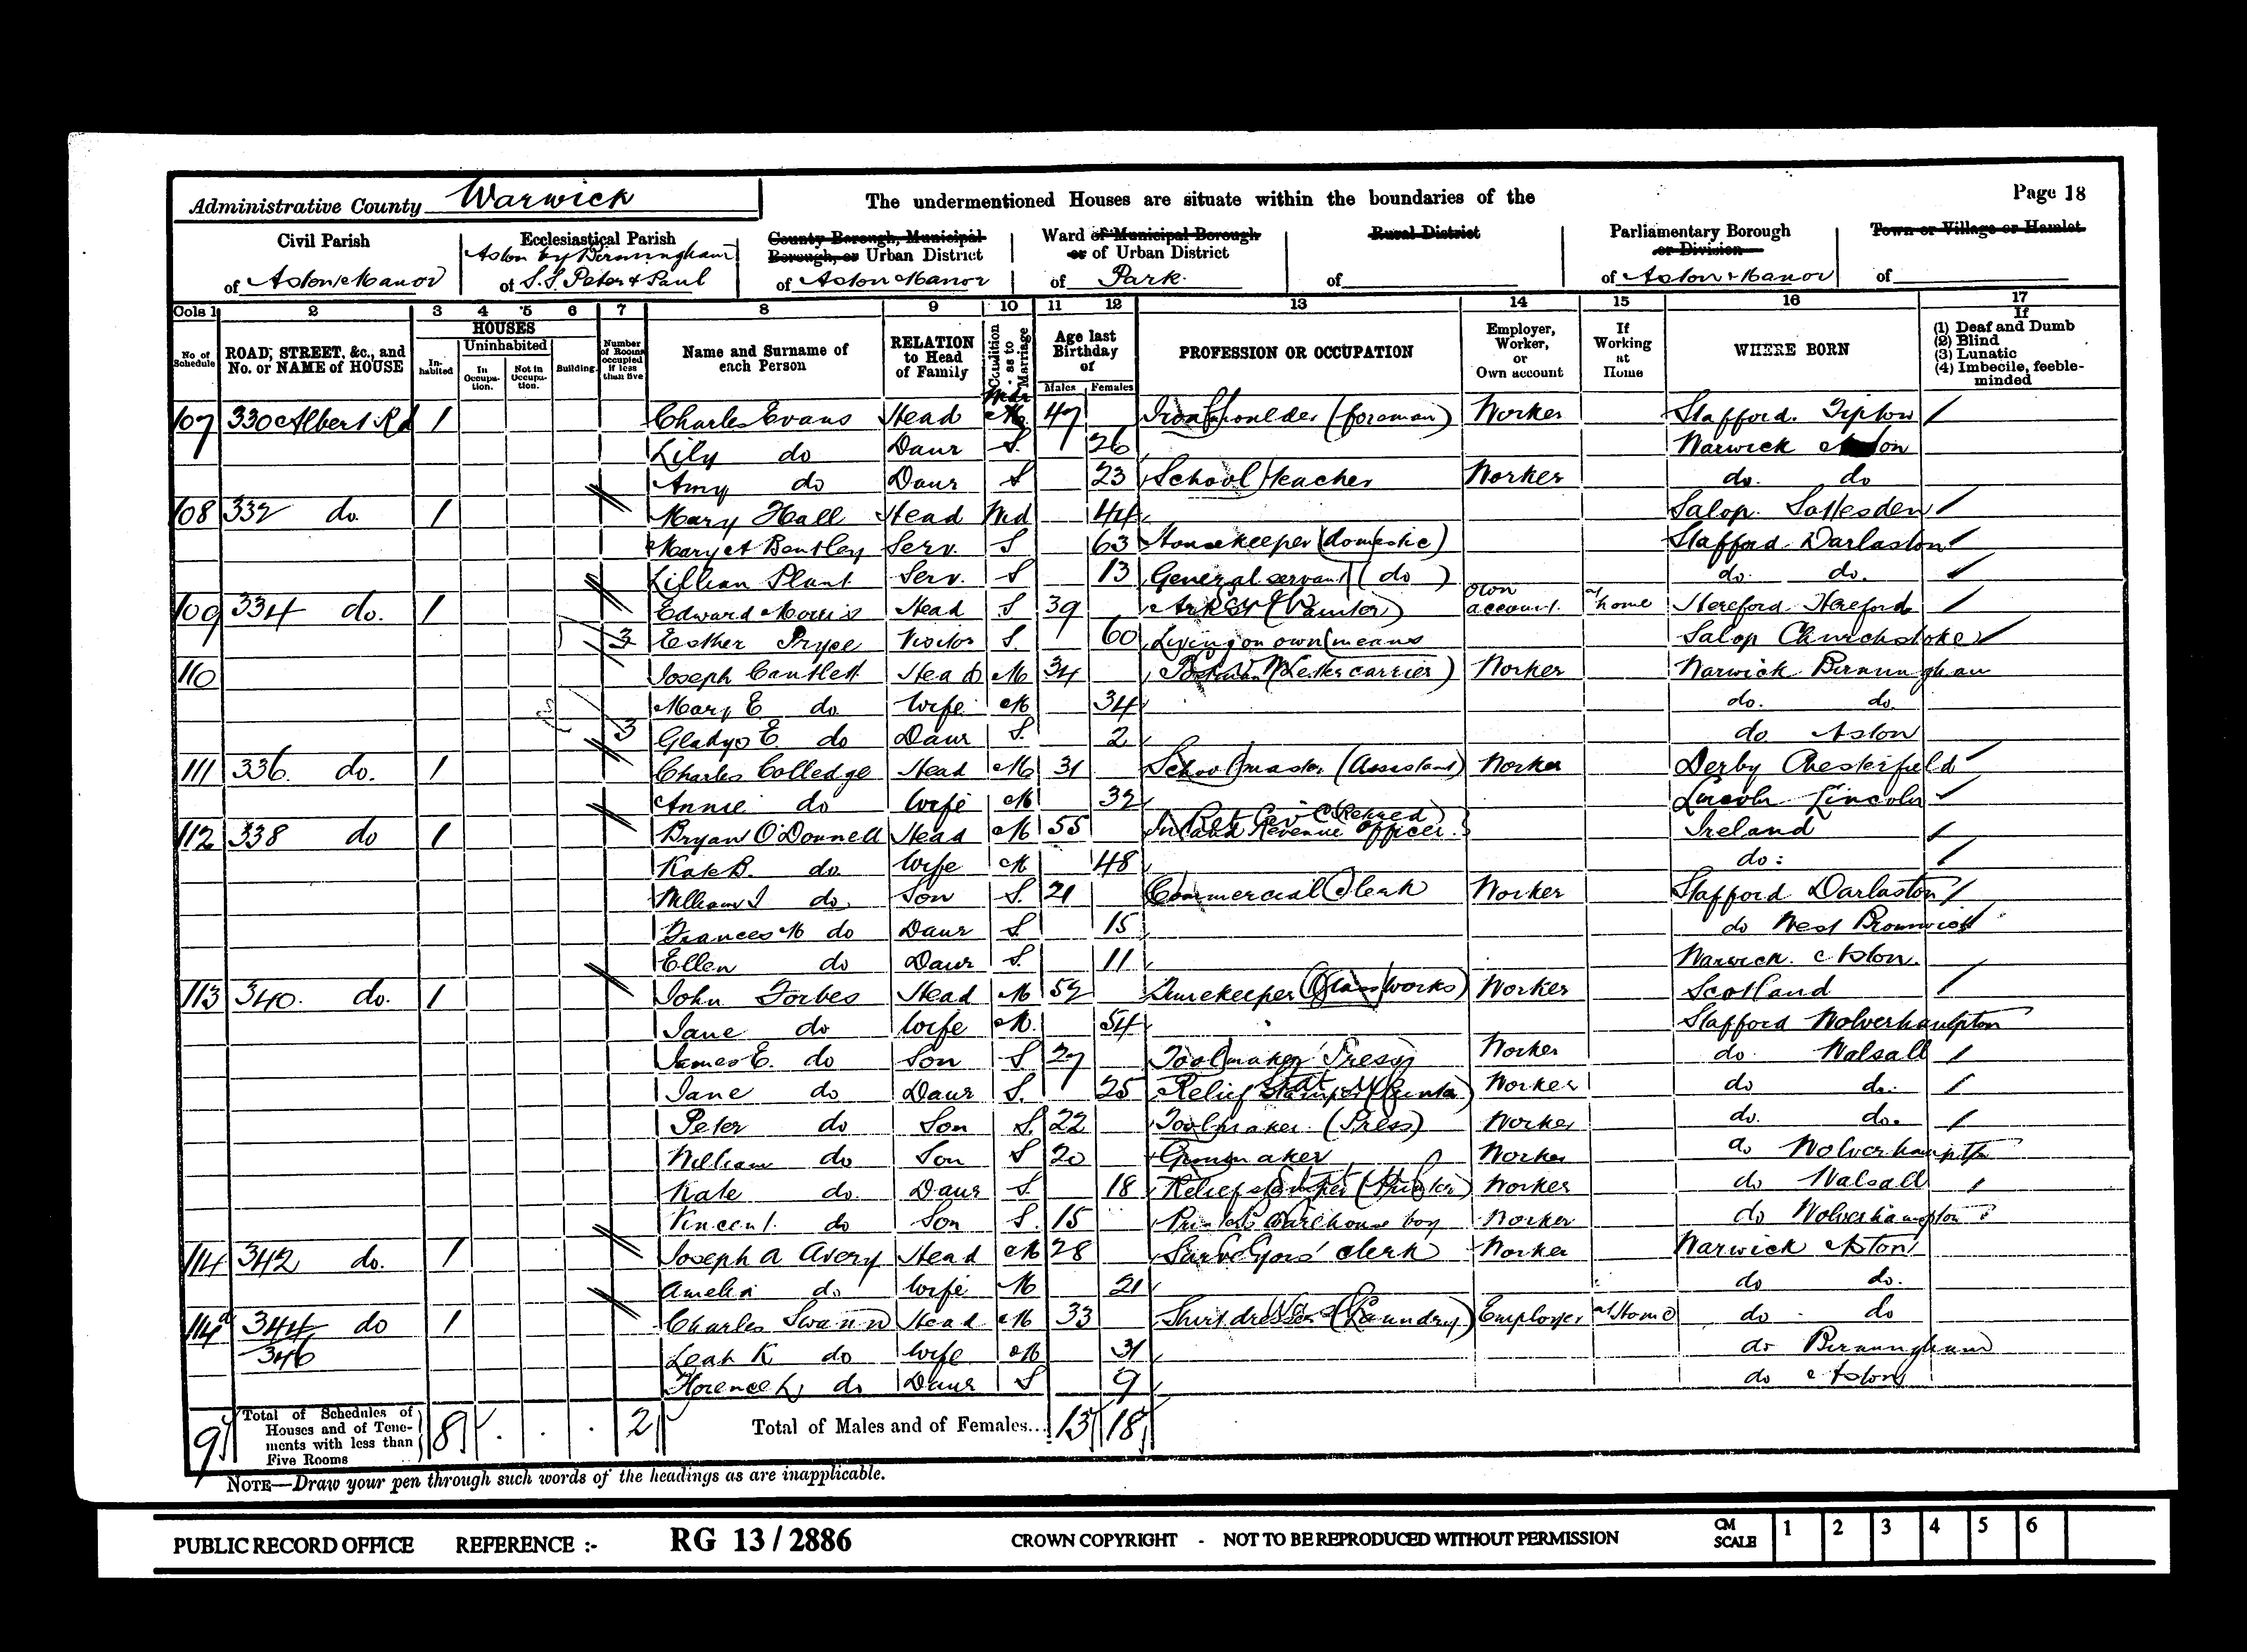 Administrative County Warwick
The undermentioned Houses are situate within the boundaries of the
Page 18
Civil Parish
of Aston Manor
Ecclesiastical Parish
Aston by Birmingham
of S.S. Peter & Paul
County Borough, Municipal
Borough, or Urban District
of Aston Manor
Ward of Municipal Borough
or of Urban District
of Park.
Rural District
of
Parliamentary Borough
or Division
of Aston Manor
Town or Village or Hamlet
of
Cols 1 2 3 4 5 6 7 8 9 10 11 12 13 14 15 16 17
No. of Schedule
ROAD, STREET, &c., and No. or NAME of HOUSE
HOUSES
Inhabited
Uninhabited
In Occupation.
Not in Occupation.
Building.
Number of Rooms occupied if less than five
Name and Surname of each Person
RELATION to Head of Family
Condition as to Marriage
Age last Birthday of
Males Females
PROFESSION OR OCCUPATION
Employer, Worker, or Own account
If Working at Home
WHERE BORN
If
(1) Deaf and Dumb
(2) Blind
(3) Lunatic
(4) Imbecile, feeble-minded
107 330 Albert Rd 1 Charles Evans Head 47 Iron moulder (foreman) Worker Stafford. Tipton
Lily do Daur S. 26 Warwick Aston
Amy do Daur S 23 School teacher Worker do. do
108 332 do. 1 Mary Hall Head Wd 44 Salop.
Mary A Bentley Serv. S 63 Housekeeper (domestic) Stafford Darlaston
Lillian Plant Serv. S 13 General servant (do) do. do.
109 334 do. 1 Edward Morris Head S 39 Artist (Painter) own account. at home Hereford. Hereford
3 Esther Pryce Visitor S. 60 Living on own means Salop Churchstoke
110 Joseph Cantlett Head M 34 Postman (Letter carrier) Worker Warwick Birmingham
Mary E do. Wife M 34 do. do.
3 Gladys E. do Daur S. 2 do Aston
111 336. do. 1 Charles Colledge Head M 31 School master (Assistant) Worker Derby Chesterfield
Annie do Wife M 32 Lincoln Lincoln
112 338 do 1 Bryan O'Donnell Head M 55 Inland Revenue Officer (Retired) Ireland
Kate B. do. Wife M 48 do:
William J do. Son S. 21 Commercial Clerk Worker Stafford Darlaston
Frances M do Daur S. 15 do West Bromwich
Ellen do Daur S. 11 Warwick. Aston.
113 340. do. 1 John Forbes Head M 52 Timekeeper (Glass works) Worker Scotland
Jane do Wife M. 54 Stafford Wolverhampton
James E. do Son S 27 Toolmaker Press Worker do. Walsall
Jane do Daur S. 25 Relief Stamper (Printer) Worker do do.
Peter do Son S. 22 Toolmaker. (Press) Worker do. do.
William do Son S 20 Gunmaker Worker do Wolverhampton
Kate do. Daur S. 18 Relief stamper (Printer) Worker do Walsall
Vincent. do Son S. 15 Printer's Warehouse boy Worker do Wolverhampton
114 342 do. 1 Joseph A Avery Head M 28 Surveyors' clerk Worker Warwick Aston
Amelia do Wife M 21 do do.
114a 344/346 do 1 Charles Swann Head M 33 Shirt dresser (Laundry) Employer at Home do do
Leah K do Wife M 31 do Birmingham
Florence L do Daur S 9 do Aston
9 Total of Schedules of Houses and of Tenements with less than Five Rooms 8 . . . 2 Total of Males and of Females... 13 18
NOTE—Draw your pen through such words of the headings as are inapplicable.
PUBLIC RECORD OFFICE REFERENCE :- RG 13/2886 CROWN COPYRIGHT - NOT TO BE REPRODUCED WITHOUT PERMISSION CM SCALE 1 2 3 4 5 6